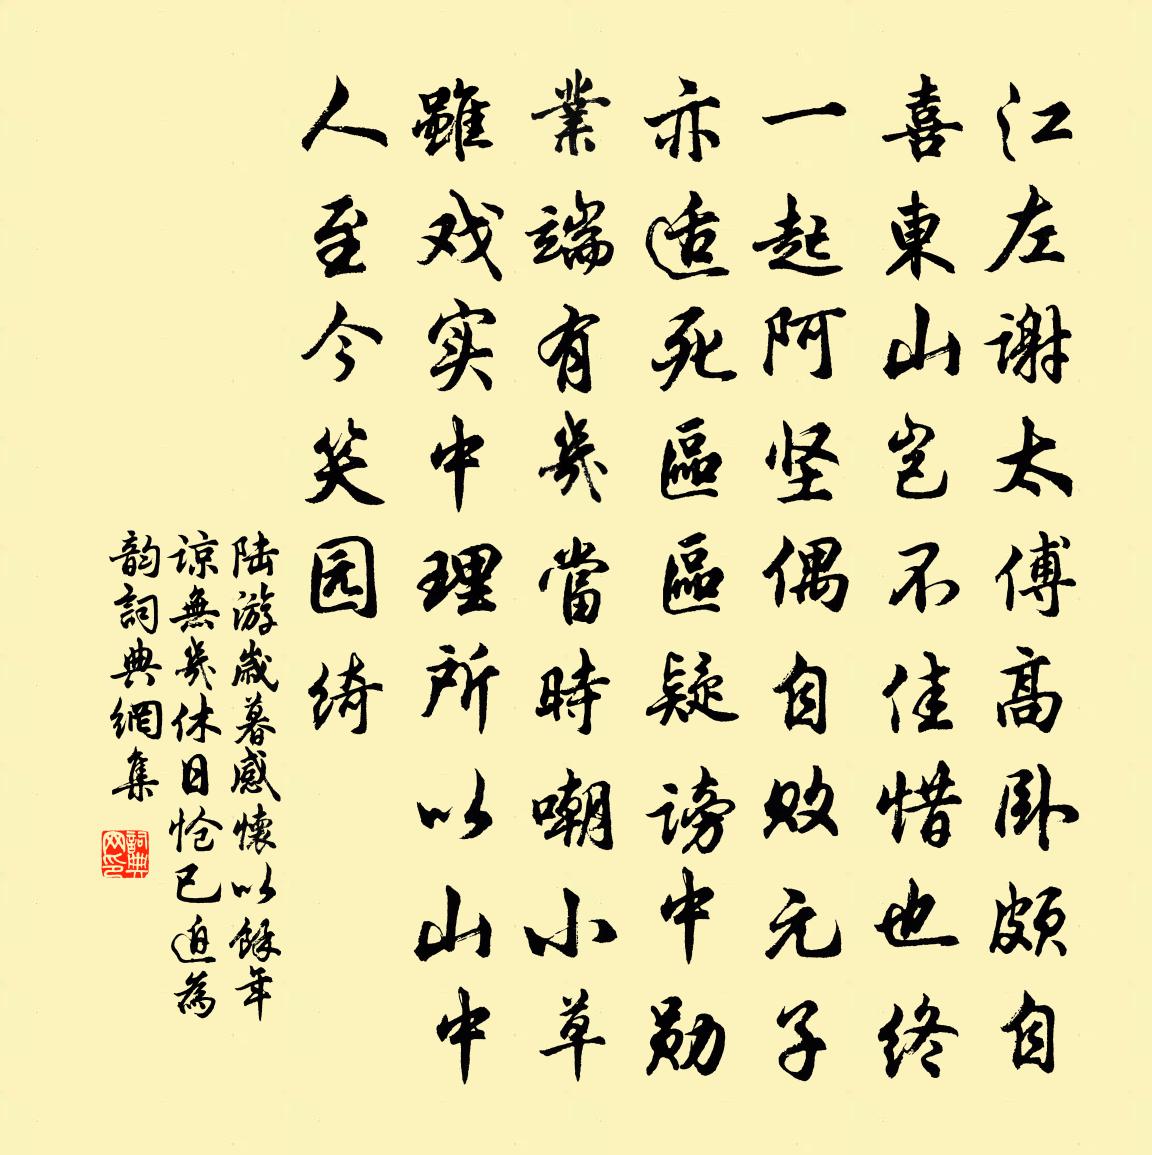 江左謝太傅高卧頗自
喜東山岂不佳惜也终
一起阿坚偶自败元子
亦适死區區疑谤中勋
業端有幾當時嘲小草
雖戏实中理所以山中
人至今笑园绮
陆游歲暮感懷以餘年
谅無幾休日怆已迫為
韵詞典網集
詞典
网印